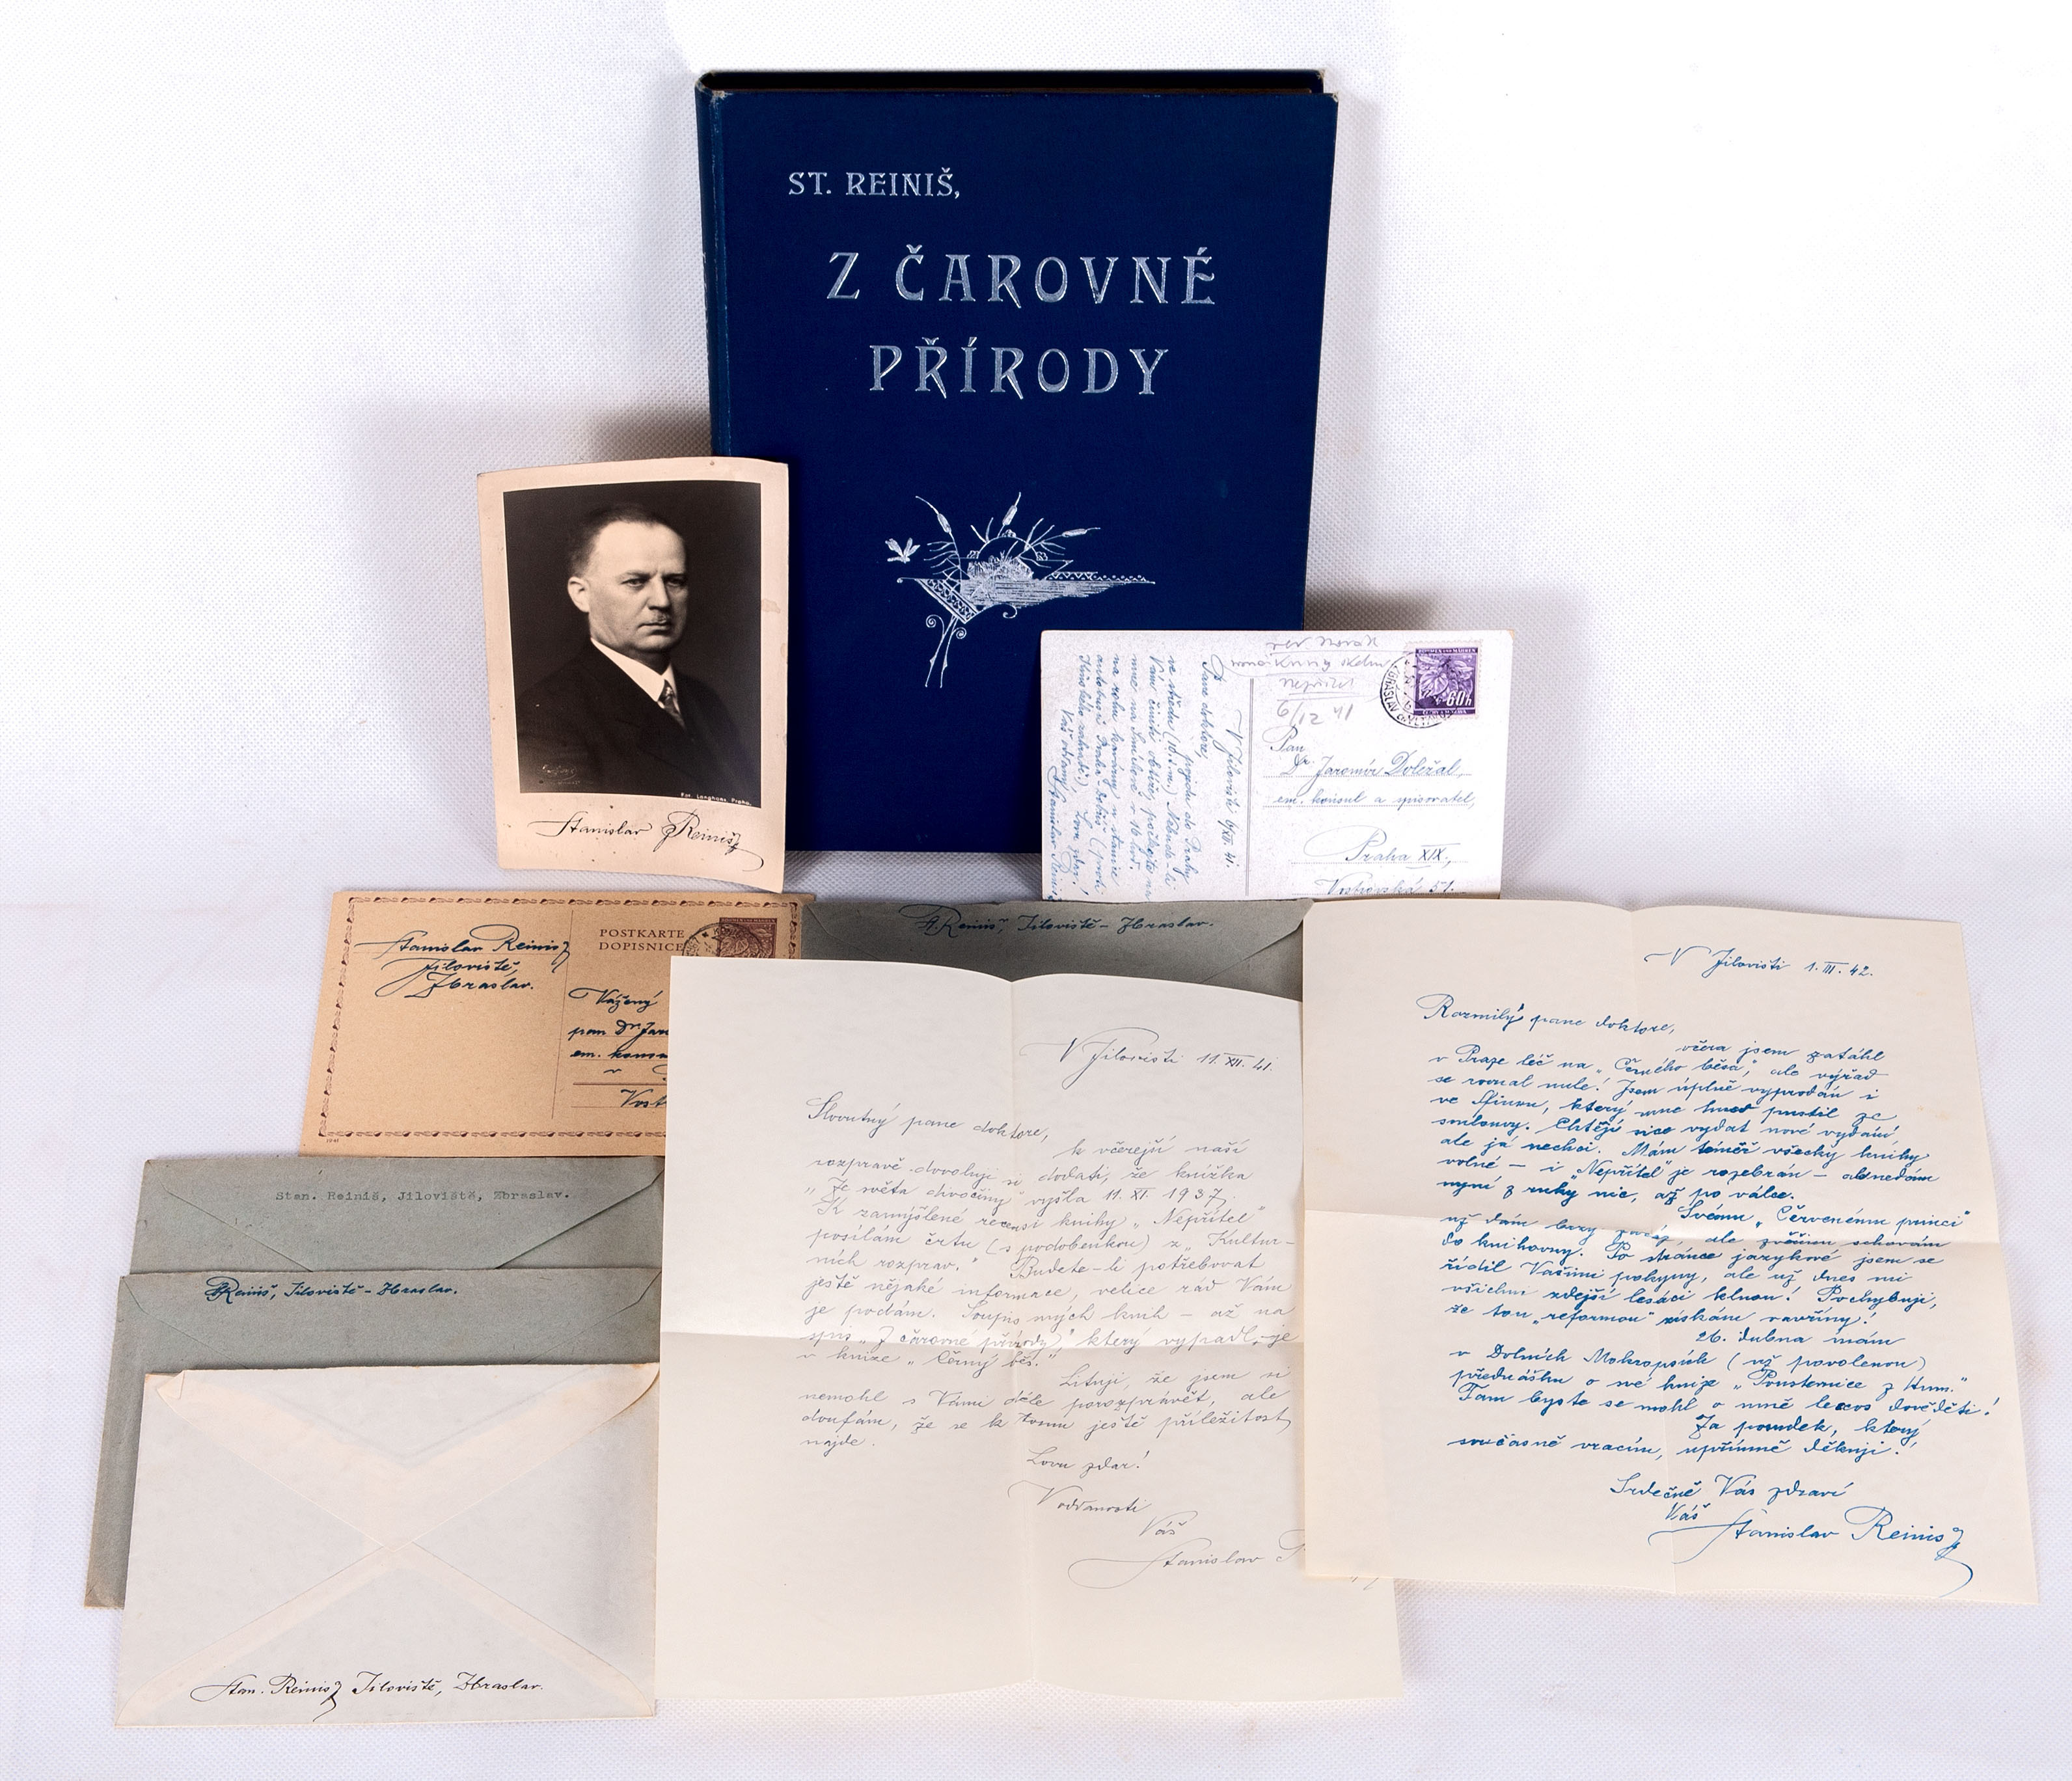 ST. REINIŠ,
Z ČAROVNÉ
PŘÍRODY
Fot. Langhans Praha.
Stanislav Reiniš
6/12 41
60h
Pan
Dr. Jaromír Doležal,
em. konsul a spisovatel,
Praha XIX.,
51.
V Jílovišti 6/XII. 41.
Pane doktore,
ve středu (10. t. m.) pojedu do Prahy
Stanislav Reiniš
Jíloviště,
Zbraslav.
POSTKARTE
DOPISNICE
Vážený
pan Dr Jar
em. konsu
v
St. Reiniš, Jíloviště - Zbraslav.
Stan. Reiniš, Jíloviště, Zbraslav.
Reiniš, Jíloviště - Zbraslav.
Stan. Reiniš Jíloviště, Zbraslav.
V Jílovišti 11. XII. 41.
Slovutný pane doktore,
k včerejší naší
rozpravě dovoluji si dodati, že knížka
"Ze světa divočiny" vyšla 11. XI. 1937.
K zamýšlené recensi knihy "Nepřítel"
posílám črtu (s podobenkou) z "Kultur-
ních rozprav." Budete-li potřebovat
ještě nějaké informace, velice rád Vám
je podám. Soupis mých knih – až na
spis "Z čarovné přírody", který vypadl, je
v knize "Černý běs."
Lituji, že jsem si
nemohl s Vámi déle porozprávět, ale
doufám, že se k tomu ještě příležitost
najde.
Lovu zdar!
V oddanosti
Váš
Stanislav
V Jílovišti 1. III. 42.
Rozmilý pane doktore,
včera jsem zatáhl
v Praze léč na "Černého běsa", ale výřad
se rovnal nule! Jsem úplně vyprodán i
ve Sfinxu, který mne hned pustil ze
smlouvy. Chtějí sice vydat nové vydání,
ale já nechci. Mám téměř všecky knihy
volné – i "Nepřítel" je rozebrán – ale nedám
nyní z ruky nic, až po válce.
Svému "Červenému princi"
už dám brzy ale schovám
do knihovny. Po stránce jazykové jsem se
řídil Vašimi pokyny, ale už dnes mi
všichni zdejší lesáci klnou! Pochybuji,
že tou "reformou" získáme vavříny!
26. dubna mám
v Dolních Mokropsích (už povolenou)
přednášku o své knize "Poustevnice z
Tam byste se mohl o mně leccos dověděti!
Za posudek, který
současně vracím, upřímně děkuji!
Srdečně Vás zdraví
Váš
Stanislav Reiniš